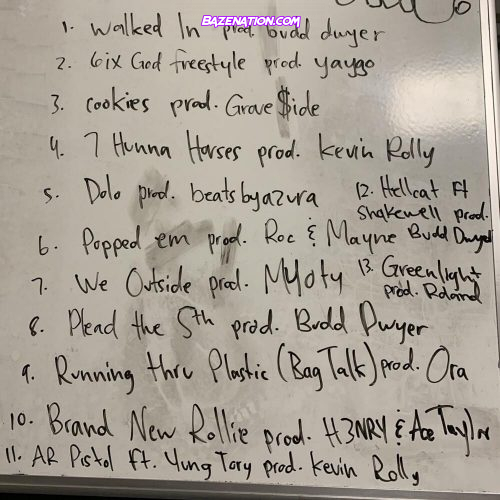 BAZENATION.COM
1. Walked In prod budd dwyer
2. 6ix God freestyle prod. yaygo
3. cookies prod. Grave$ide
4. 7 Hunna Horses prod. Kevin Rolly
5. Dolo prod. beatsbyazura
6. Popped em prod. Roc & Mayne
7. We Outside prod. Myoty
8. Plead the 5th prod. Budd Dwyer
9. Running thru Plastic (Bag Talk) prod. Ora
10. Brand New Rollie prod. H3NRY & Ace Taylor
11. AR Pistol ft. Yung Tory prod. Kevin Rolly
12. Hellcat Ft
Shakewell prod.
Budd Dwyer
13. Greenlight
prod. Roland